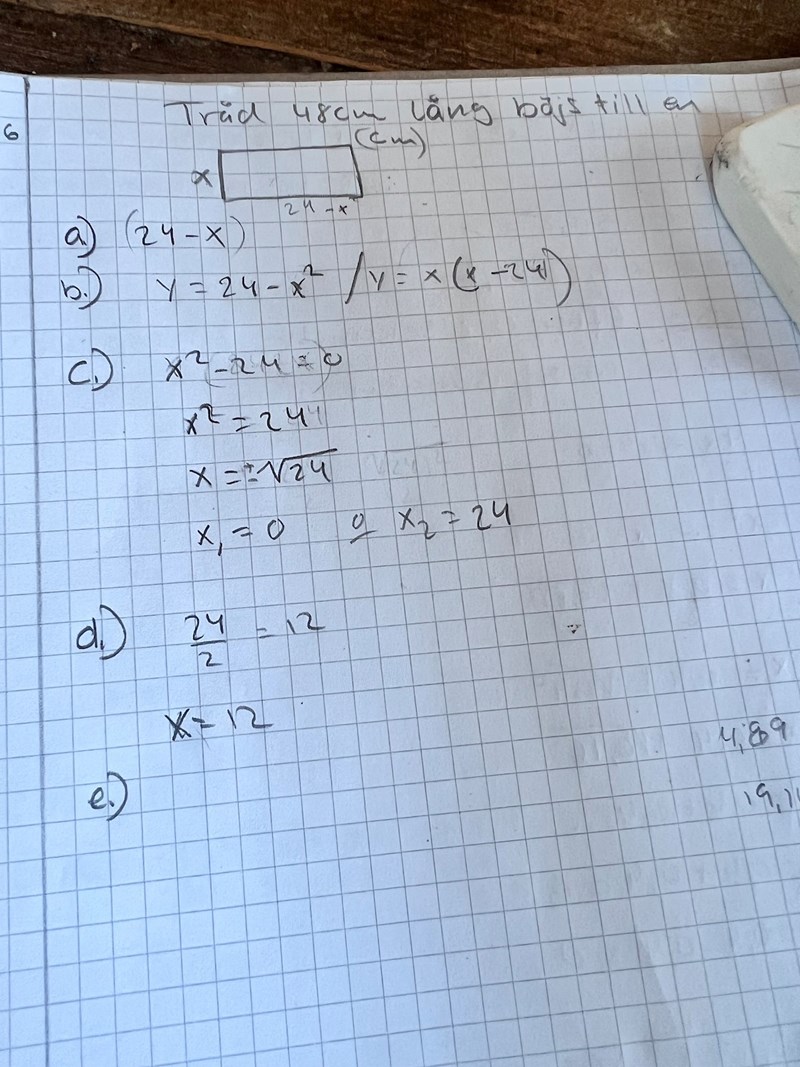 6
Tråd 48cm lång böjs till en
(cm)
x
24-x
a) (24-x)
b.) y = 24 - x² / y = x(x-24)
c.) x² - 24 = 0
x² = 24
x = ±√24
x₁ = 0 o x₂ = 24
d.) 24/2 = 12
x = 12
4,89
e.)